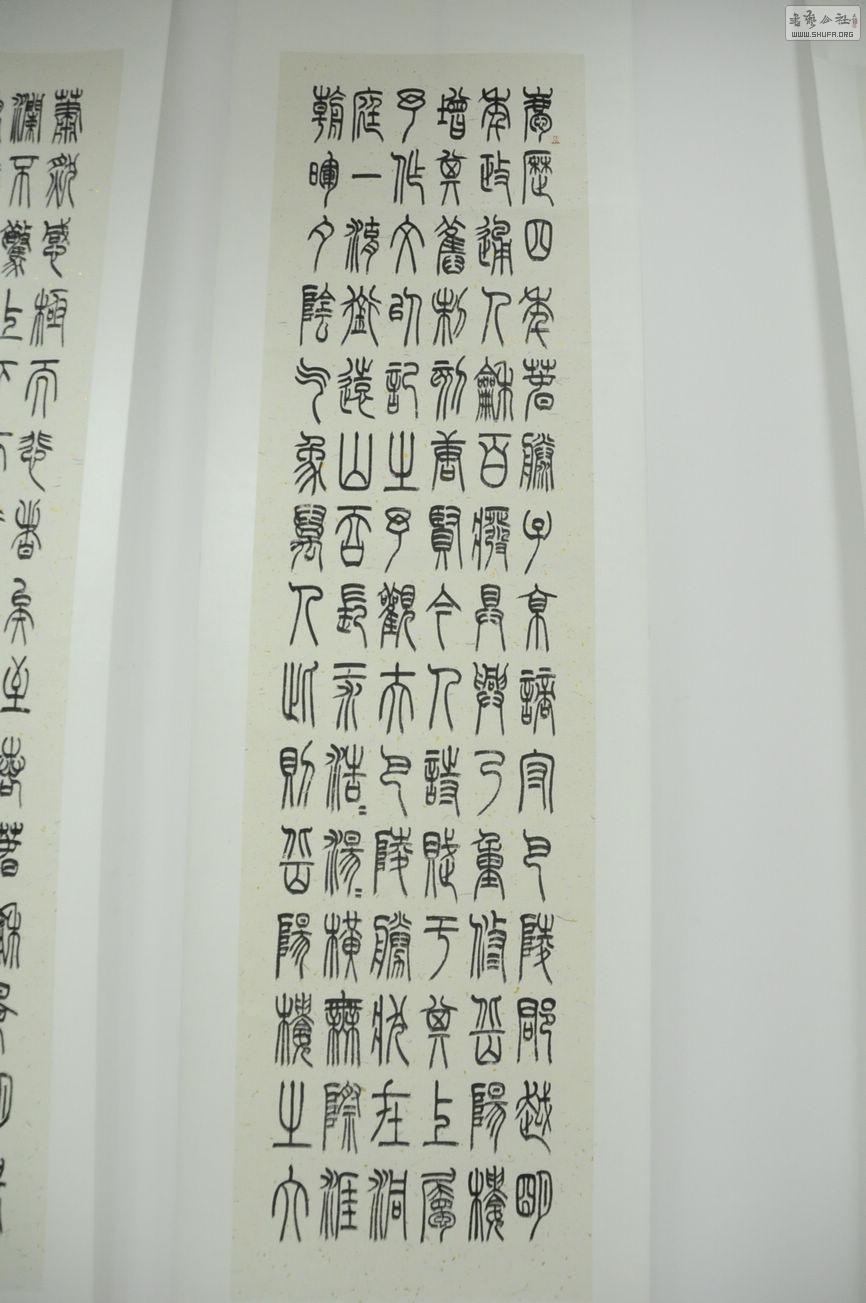 慶歷四年春滕子京謫守巴陵郡越明
年政通人龢百廢具興乃重修岳陽樓
增其舊制刻唐賢今人詩賦于其上屬
予作文以記之予觀夫巴陵勝狀在洞
庭一湖銜遠山吞長江浩=湯=橫無際涯
朝暉夕陰气象萬千此則岳陽樓之大
蕭然感極而悲者矣至若春龢景明
瀾不驚上下
書藝公社
WWW.SHUFA.ORG